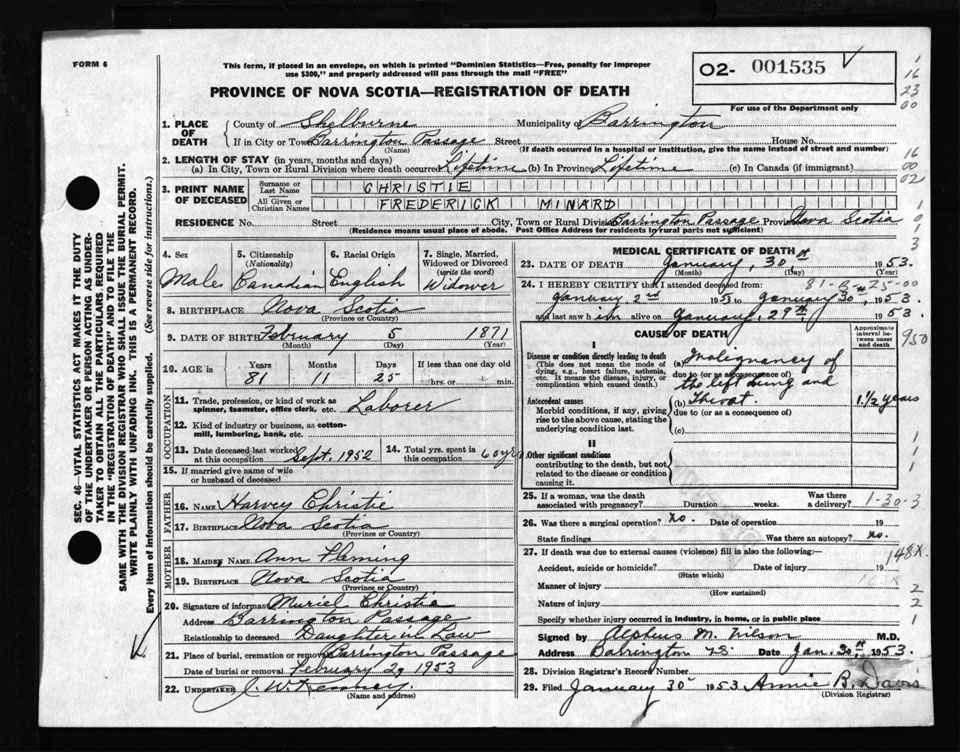 FORM 6
This form, if placed in an envelope, on which is printed "Dominion Statistics—Free, penalty for improper
use $300," and properly addressed will pass through the mail "FREE"
02- 001535
PROVINCE OF NOVA SCOTIA—REGISTRATION OF DEATH
For use of the Department only
1. PLACE OF DEATH
County of Shelburne Municipality of Barrington
If in City or Town Barrington Passage Street House No.
(Name) (If death occurred in a hospital or institution, give the name instead of street and number)
2. LENGTH OF STAY (in years, months and days)
(a) In City, Town or Rural Division where death occurred Lifetime (b) In Province Lifetime (c) In Canada (if immigrant)
3. PRINT NAME OF DECEASED
Surname or Last Name CHRISTIE
All Given or Christian Names FREDERICK MINARD
RESIDENCE No. Street City, Town or Rural Division Barrington Passage Province Nova Scotia
(Residence means usual place of abode. Post Office Address for residents in rural parts not sufficient)
4. Sex Male
5. Citizenship (Nationality) Canadian
6. Racial Origin English
7. Single, Married, Widowed or Divorced (write the word) Widower
8. BIRTHPLACE Nova Scotia
(Province or Country)
9. DATE OF BIRTH February 5 1871
(Month) (Day) (Year)
10. AGE in Years 81 Months 11 Days 25 If less than one day old hrs. or min.
OCCUPATION
11. Trade, profession, or kind of work as
spinner, teamster, office clerk, etc. Laborer
12. Kind of industry or business, as cotton-
mill, lumbering, bank, etc.
13. Date deceased last worked at this occupation Sept. 1952
14. Total yrs. spent in this occupation 60 yrs
15. If married give name of wife
or husband of deceased
FATHER
16. NAME Harvey Christie
17. BIRTHPLACE Nova Scotia
(Province or Country)
MOTHER
18. MAIDEN NAME Ann Fleming
19. BIRTHPLACE Nova Scotia
(Province or Country)
20. Signature of informant Muriel Christie
Address Barrington Passage
Relationship to deceased Daughter in Law
21. Place of burial, cremation or removal Barrington Passage
Date of burial or removal February 2, 1953
22. UNDERTAKER
(Name and address)
MEDICAL CERTIFICATE OF DEATH
23. DATE OF DEATH January, 30 1953.
(Month) (Day) (Year)
24. I HEREBY CERTIFY that I attended deceased from:
81-B-25-00
January 2nd 1953 to January 30, 1953.
and last saw him alive on January, 29th,
CAUSE OF DEATH
Approximate interval between onset and death
950
I
Disease or condition directly leading to death
(This does not mean the mode of
dying, e.g., heart failure, asthenia,
etc. It means the disease, injury, or
complication which caused death.)
(a) Malignancy of
due to (or as a consequence of)
the left lung and
Antecedent causes
Morbid conditions, if any, giving
rise to the above cause, stating the
underlying condition last.
(b) Throat. 1 1/2 years
due to (or as a consequence of)
(c)
II
Other significant conditions
contributing to the death, but not
related to the disease or condition
causing it.
25. If a woman, was the death associated with pregnancy? Duration weeks. Was there a delivery?
1-30-3
26. Was there a surgical operation? No. Date of operation 19
State findings Was there an autopsy? No.
27. If death was due to external causes (violence) fill in also the following:—
148X
Accident, suicide or homicide? Date of injury 19
(State which)
Manner of injury
(How sustained)
Nature of injury
Specify whether injury occurred in industry, in home, or in public place
Signed by Alpheus M. Wilson M.D.
Address Barrington N.S. Date Jan. 30th 1953.
28. Division Registrar's Record Number
29. Filed January 30 1953 Annie B. Davis
(Division Registrar)
SEC. 46—VITAL STATISTICS ACT MAKES IT THE DUTY
OF THE UNDERTAKER OR PERSON ACTING AS UNDER-
TAKER TO OBTAIN ALL THE PARTICULARS REQUIRED
IN THE "REGISTRATION OF DEATH" AND TO FILE THE
SAME WITH THE DIVISION REGISTRAR WHO SHALL ISSUE THE BURIAL PERMIT.
WRITE PLAINLY WITH UNFADING INK. THIS IS A PERMANENT RECORD.
Every item of information should be carefully supplied. (See reverse side for instructions.)
1
16
23
00
16
00
02
1
0
1
3
1
1
1
2
2
1